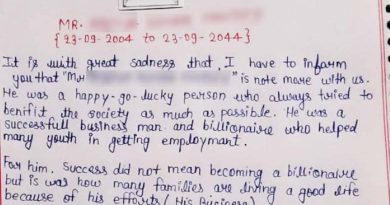 MR.
{ 23-09-2004 to 23-09-2044 }
It is with great sadness that, I have to inform
you that "Mr " is note more with us.
He was a happy-go-lucky person who always tried to
benifit the society as much as possible. He was a
successfull business man and billionaire who helped
many youth in getting employmant.
For him, Success did not mean becoming a billionaire
but is was how many families are living a good life
because of his efforts ( His Business )